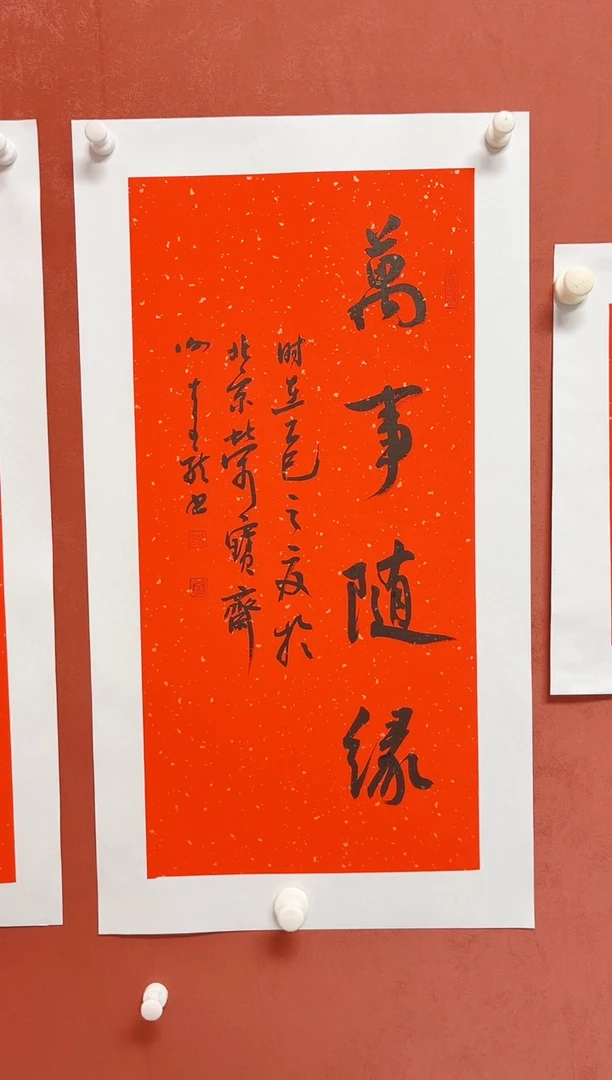 萬事随缘
时在乙巳之夏於
北京荣寶齋
书